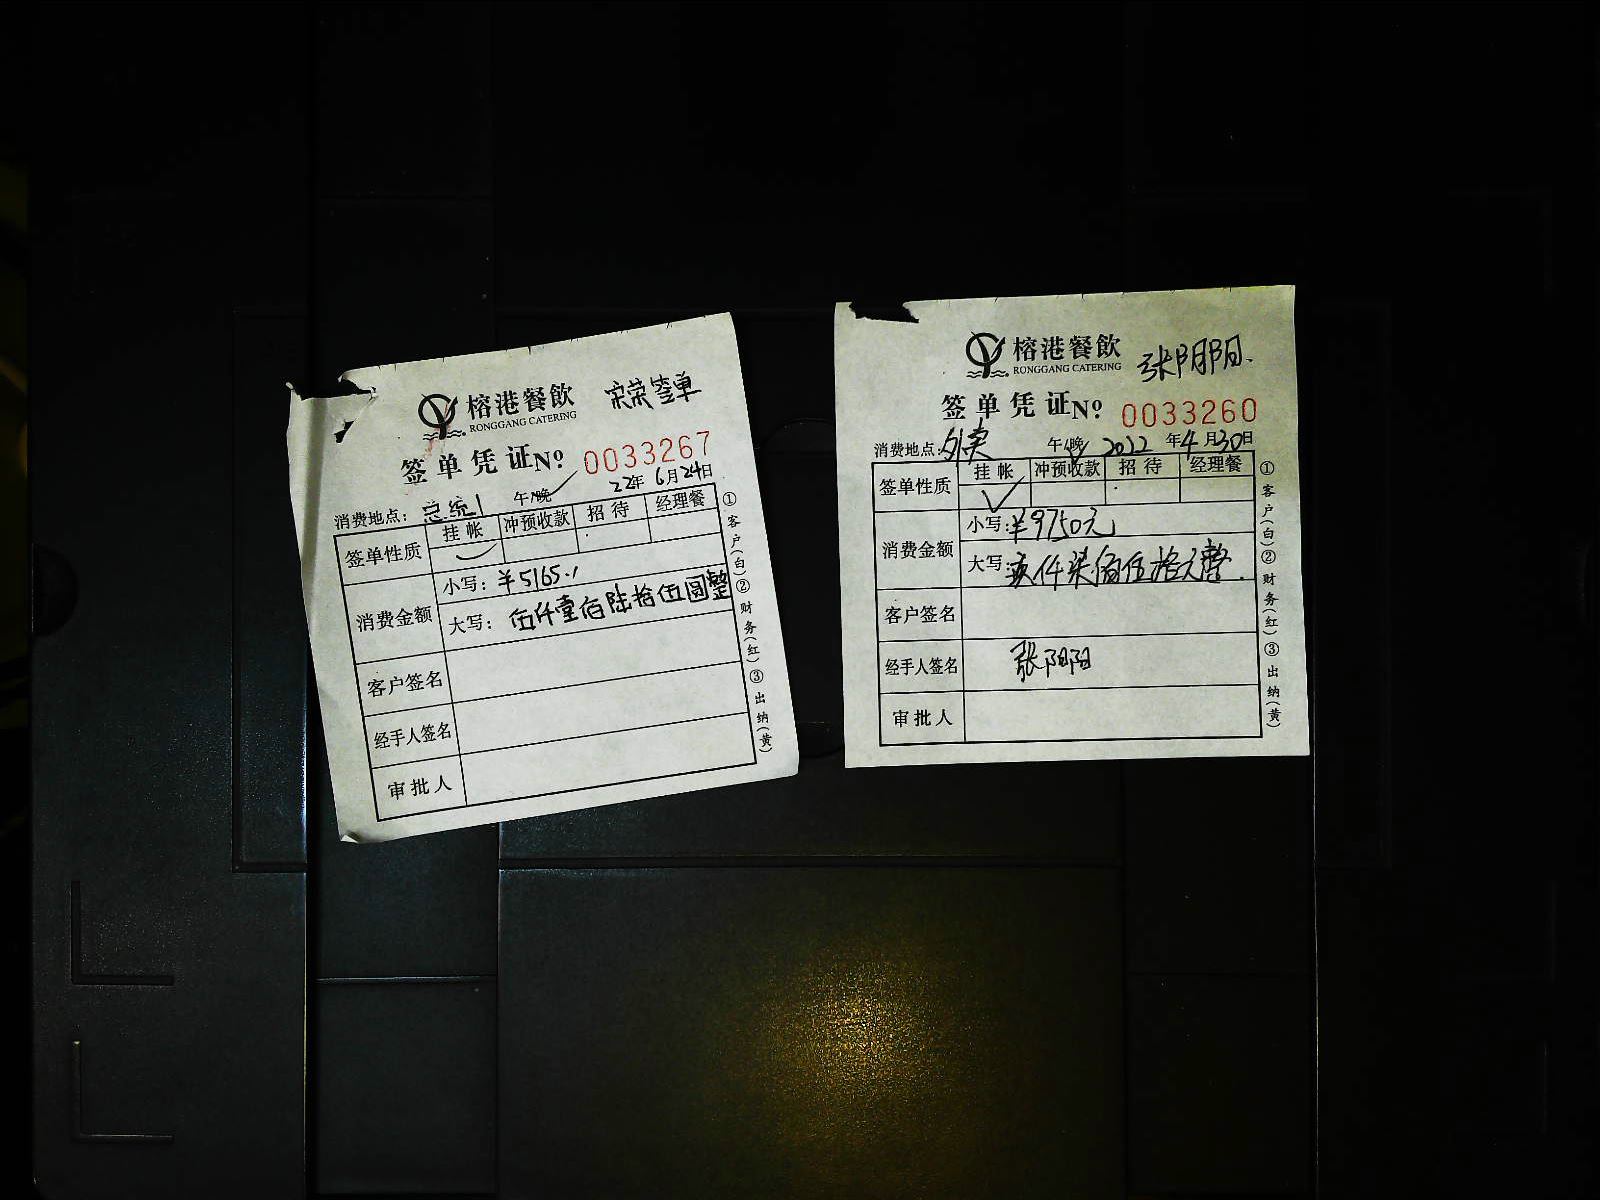 榕港餐飲 宋荣签单
RONGGANG CATERING
签单凭证№ 0033267
消费地点：总统1 午/晚 22年6月24日
签单性质 挂帐 冲预收款 招待 经理餐
消费金额 小写：¥5165.1
大写：伍仟壹佰陆拾伍圆整
客户签名
经手人签名
审批人
①客户(白)②财务(红)③出纳(黄)
榕港餐飲 张阳阳.
RONGGANG CATERING
签单凭证№ 0033260
消费地点：外卖 午/晚 2022年4月30日
签单性质 挂帐 冲预收款 招待 经理餐
消费金额 小写：¥9750元
大写：玖仟柒佰伍拾元整.
客户签名
经手人签名 张阳阳
审批人
①客户(白)②财务(红)③出纳(黄)